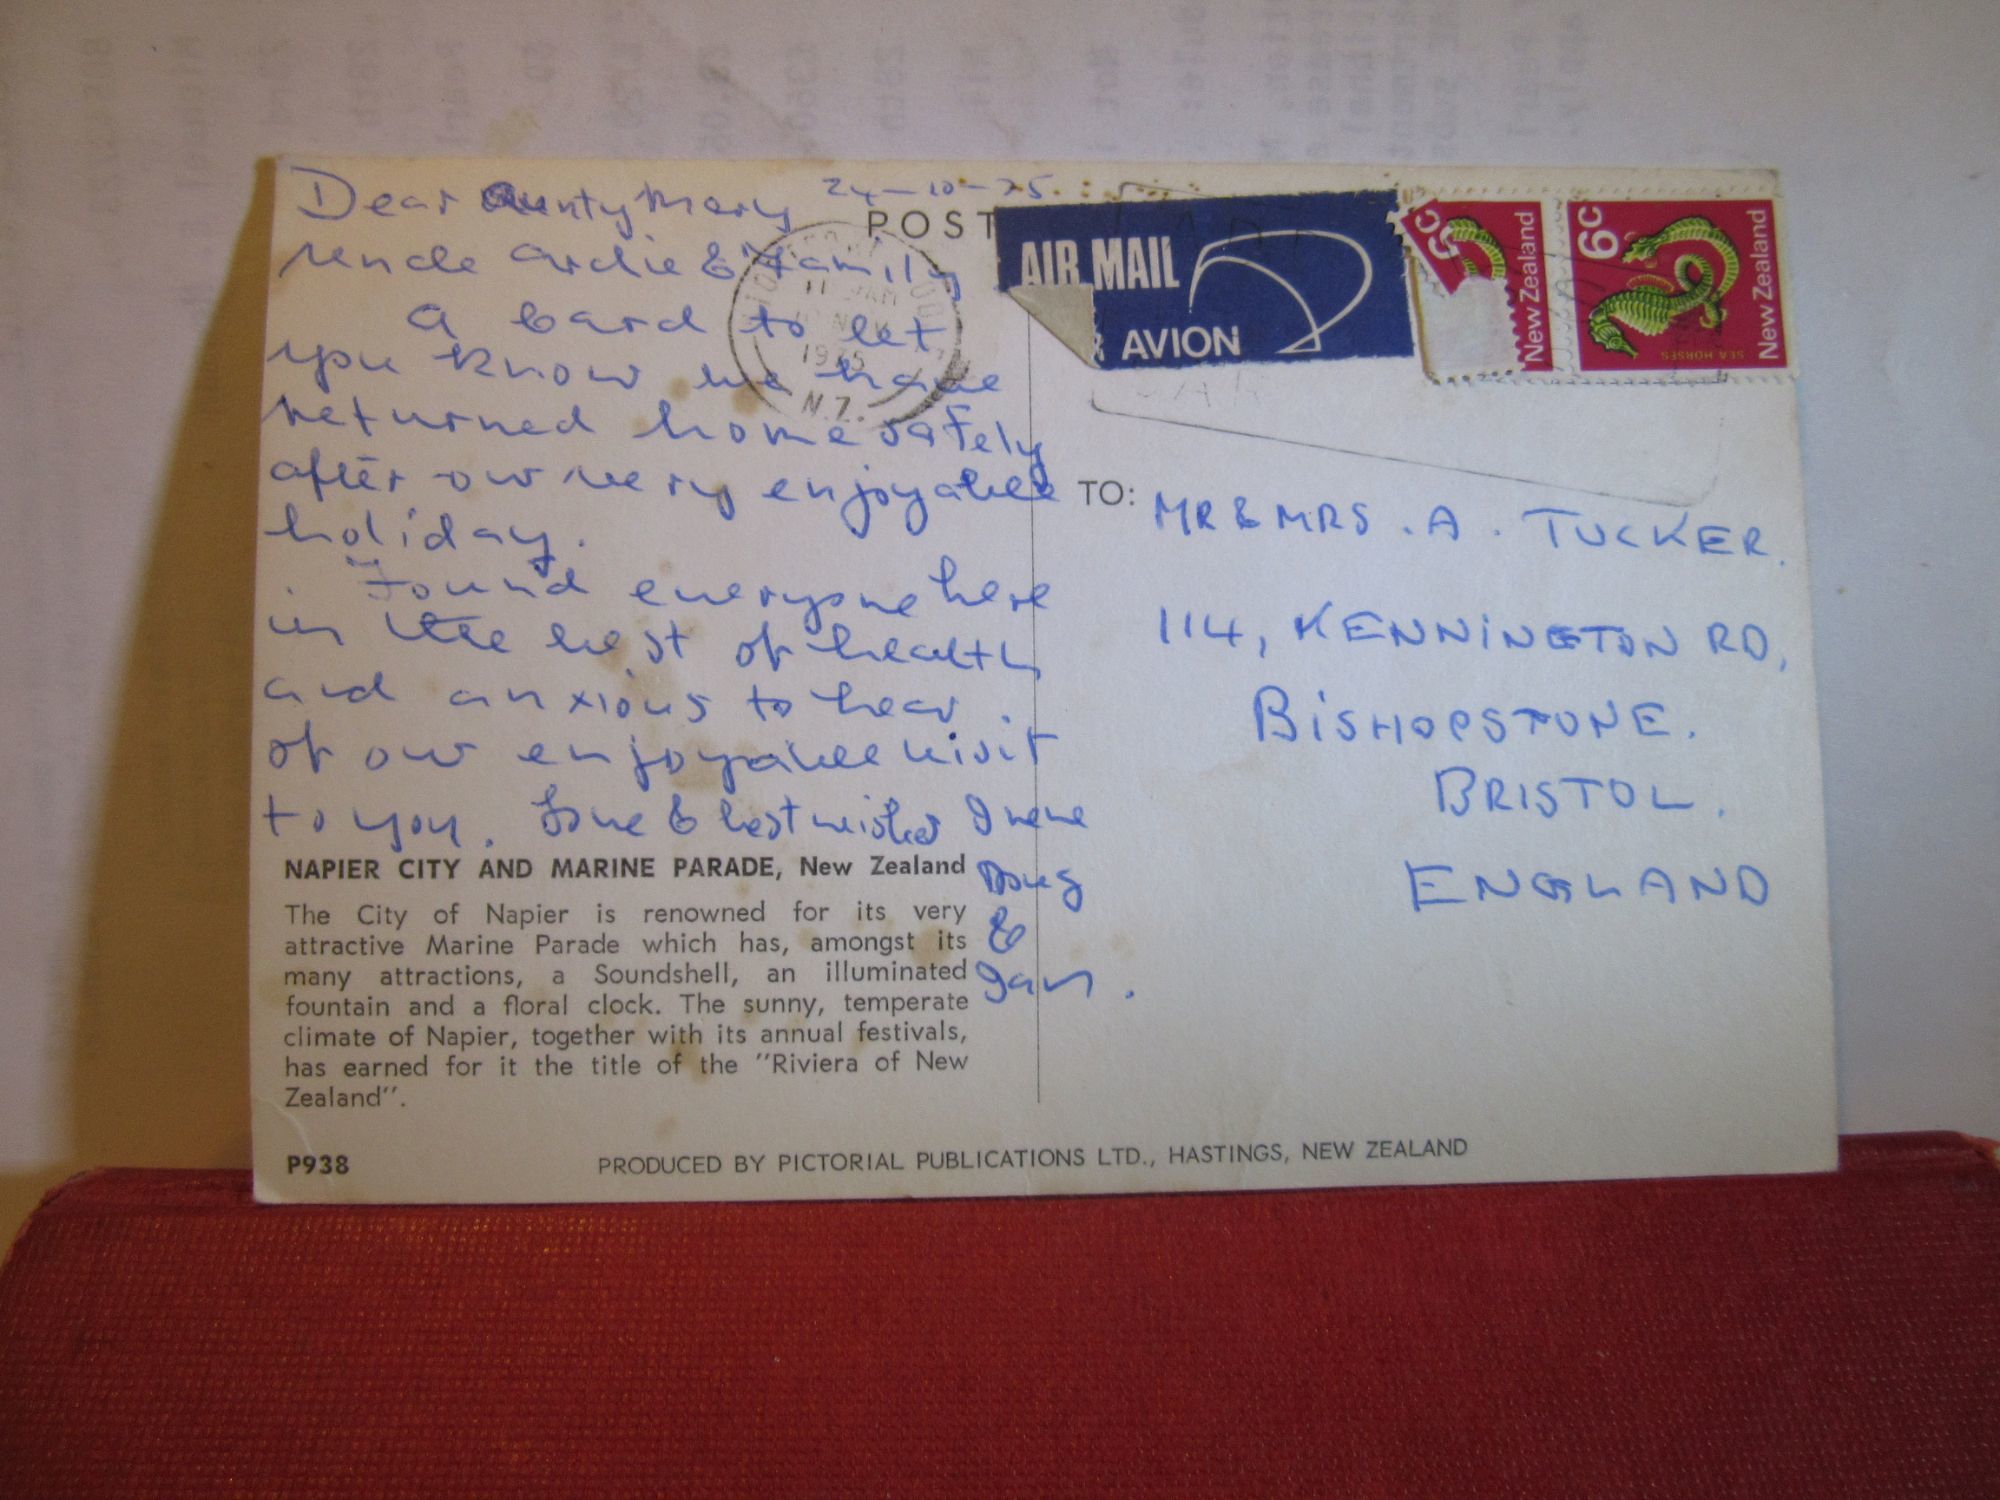 Dear Aunty Mary 24-10-75.
Uncle Ardie & Family
A card to let
you know we have
returned home safely
after our very enjoyable
holiday.
Found everyone here
in the best of health
and anxious to hear
of our enjoyable visit
to you. Love & best wishes Irene
Doug
&
Ian.
POST
11 AM
NOV
1975
N.Z.
AIR MAIL
AVION
New Zealand
6c
SEA HORSES
New Zealand
TO: MR & MRS . A . TUCKER.
114, KENNINGTON RD,
BISHOPSTONE.
BRISTOL.
ENGLAND
NAPIER CITY AND MARINE PARADE, New Zealand
The City of Napier is renowned for its very
attractive Marine Parade which has, amongst its
many attractions, a Soundshell, an illuminated
fountain and a floral clock. The sunny, temperate
climate of Napier, together with its annual festivals,
has earned for it the title of the "Riviera of New
Zealand".
P938
PRODUCED BY PICTORIAL PUBLICATIONS LTD., HASTINGS, NEW ZEALAND